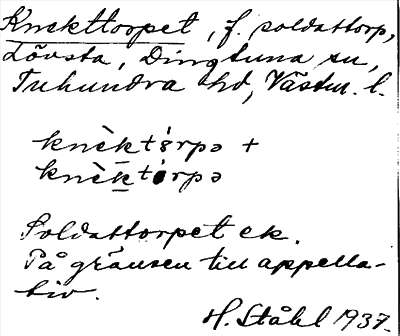 Knekttorpet, f. soldattorp,
Lövsta, Dingtuna sn,
Tuhundra hd, Västm. l.
knèktɷ́rpə +
knèktɷ́rpə
Soldattorpet ek.
På gränsen till appella-
tiv.
H. Ståhl 1937.